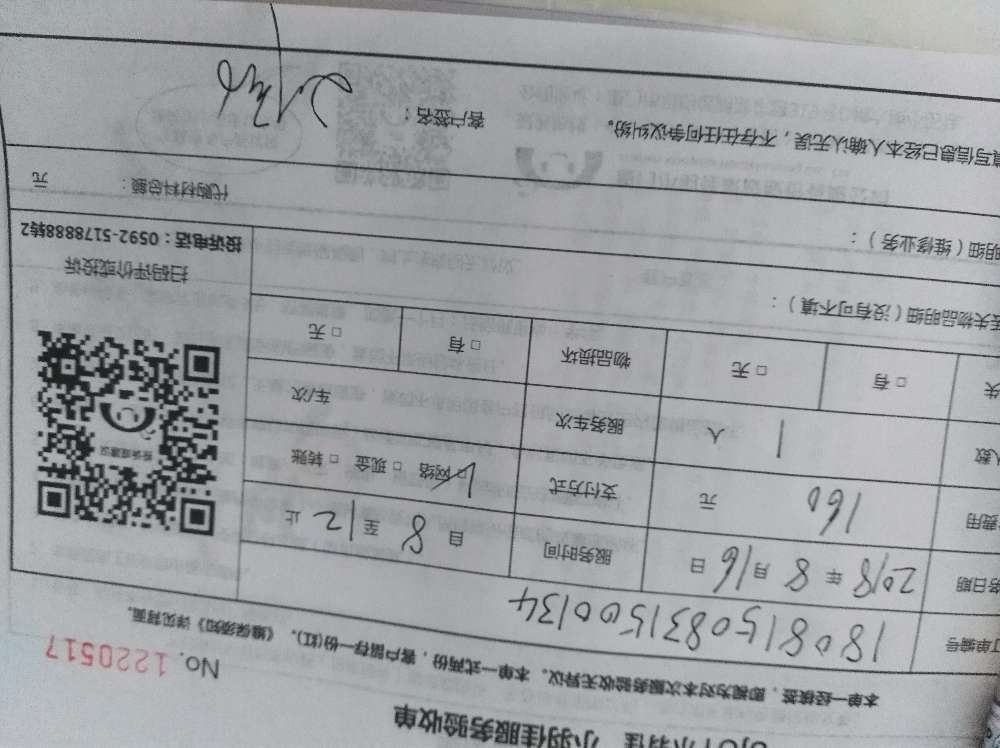 小羽佳 小羽佳服务验收单
No. 1220517
本单一经核签，即视为对本次服务验收无异议。本单一式两份，客户留存一份(红)。《维保须知》详见背面。
订单编号 180815083150 0134
务日期 2018 年 8 月 16 日 服务时间 自 8 至 12 止
费用 160 元 支付方式 ☑ 网络 □ 现金 □ 转账
人数 1 人 服务车次 车/次
失 □ 有 □ 无 物品损坏 □ 有 □ 无
投诉或建议
扫码评价或投诉
投诉电话：0592-5178888转2
丢失物品明细（没有可不填）：
明细（维修业务）： 代购材料总额： 元
填写信息已经本人确认无误，不存在任何争议纠纷。 客户签名：